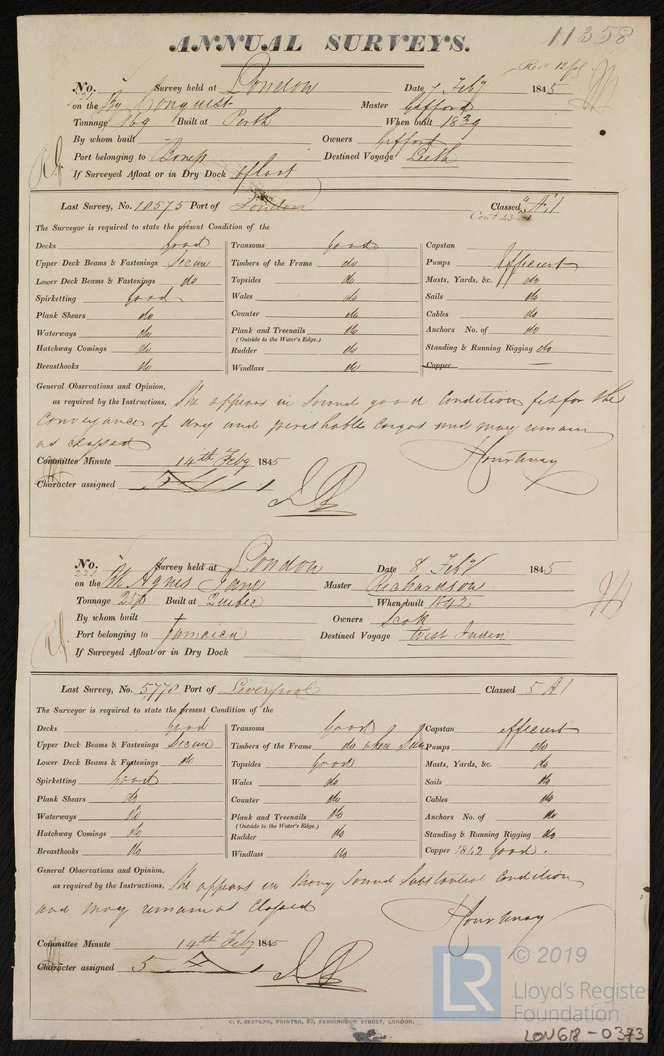 11358
ANNUAL SURVEYS.
No. Survey held at London Date 7 Feby 1845
on the Conquest Master Gifford
Tonnage 169 Built at Perth When built 1839
By whom built Owners Gifford
Port belonging to Destined Voyage Leith
If Surveyed Afloat or in Dry Dock afloat
Last Survey, No. 10575 Port of London Classed "A" 1
The Surveyor is required to state the present Condition of the
Decks good Transoms good Capstan
Upper Deck Beams & Fastenings Secure Timbers of the Frame do Pumps efficient
Lower Deck Beams & Fastenings do Topsides do Masts, Yards, &c. do
Spirketting good Wales do Sails do
Plank Shears do Counter do Cables do
Waterways do Plank and Treenails do Anchors No. of do
(Outside to the Water's Edge.)
Hatchway Comings do Rudder do Standing & Running Rigging do
Breasthooks do Windlass do Copper —
General Observations and Opinion,
as required by the Instructions, She appears in Sound good Condition fit for the
Conveyance of dry and perishable Cargos and may remain
as Classed
Committee Minute 14th Feby 1845
Character assigned
No. Survey held at London Date 8 Feby 1845
221
on the Agnes Jane Master Richardson
Tonnage Built at Quebec When built 1842
By whom built Owners Scott
Port belonging to Jamaica Destined Voyage West Indies
If Surveyed Afloat or in Dry Dock
Last Survey, No. 5770 Port of Liverpool Classed 5 A1
The Surveyor is required to state the present Condition of the
Decks good Transoms good Capstan efficient
Upper Deck Beams & Fastenings Secure Timbers of the Frame do when Seen Pumps do
Lower Deck Beams & Fastenings do Topsides good Masts, Yards, &c. do
Spirketting good Wales do Sails do
Plank Shears do Counter do Cables do
Waterways do Plank and Treenails do Anchors No. of do
(Outside to the Water's Edge.)
Hatchway Comings do Rudder do Standing & Running Rigging do
Breasthooks do Windlass do Copper 1842 good.
General Observations and Opinion,
as required by the Instructions, She appears in Strong Sound Substantial Condition
and may remain as Classed
Committee Minute 14th Feby 1845
Character assigned 5
LR © 2019
Lloyd's Register
Foundation
C. F. SEYFANG, PRINTER, 57, FARRINGDON STREET, LONDON.
LON618-0373